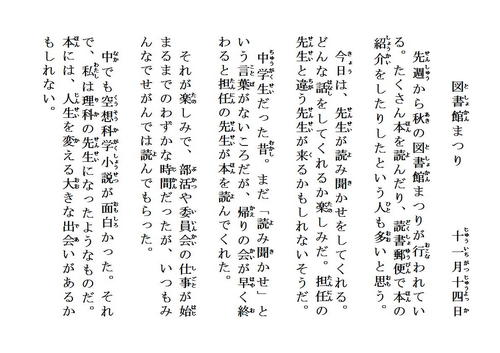 図書館まつり　十一月十四日
先週から秋の図書館まつりが行われてい
る。たくさん本を読んだり、読書郵便で本の
紹介をしたりしたという人も多いと思う。
今日は、先生が読み聞かせをしてくれる。
どんな話をしてくれるか楽しみだ。担任の
先生と違う先生が来るかもしれないそうだ。
中学生だった昔。まだ「読み聞かせ」と
いう言葉がないころだが、帰りの会が早く終
わると担任の先生が本を読んでくれた。
それが楽しみで、部活や委員会の仕事が始
まるまでのわずかな時間だったが、いつもみ
んなでせがんでは読んでもらった。
中でも空想科学小説が面白かった。それ
で、私は理科の先生になったようなものだ。
本には、人生を変える大きな出会いがあるか
もしれない。